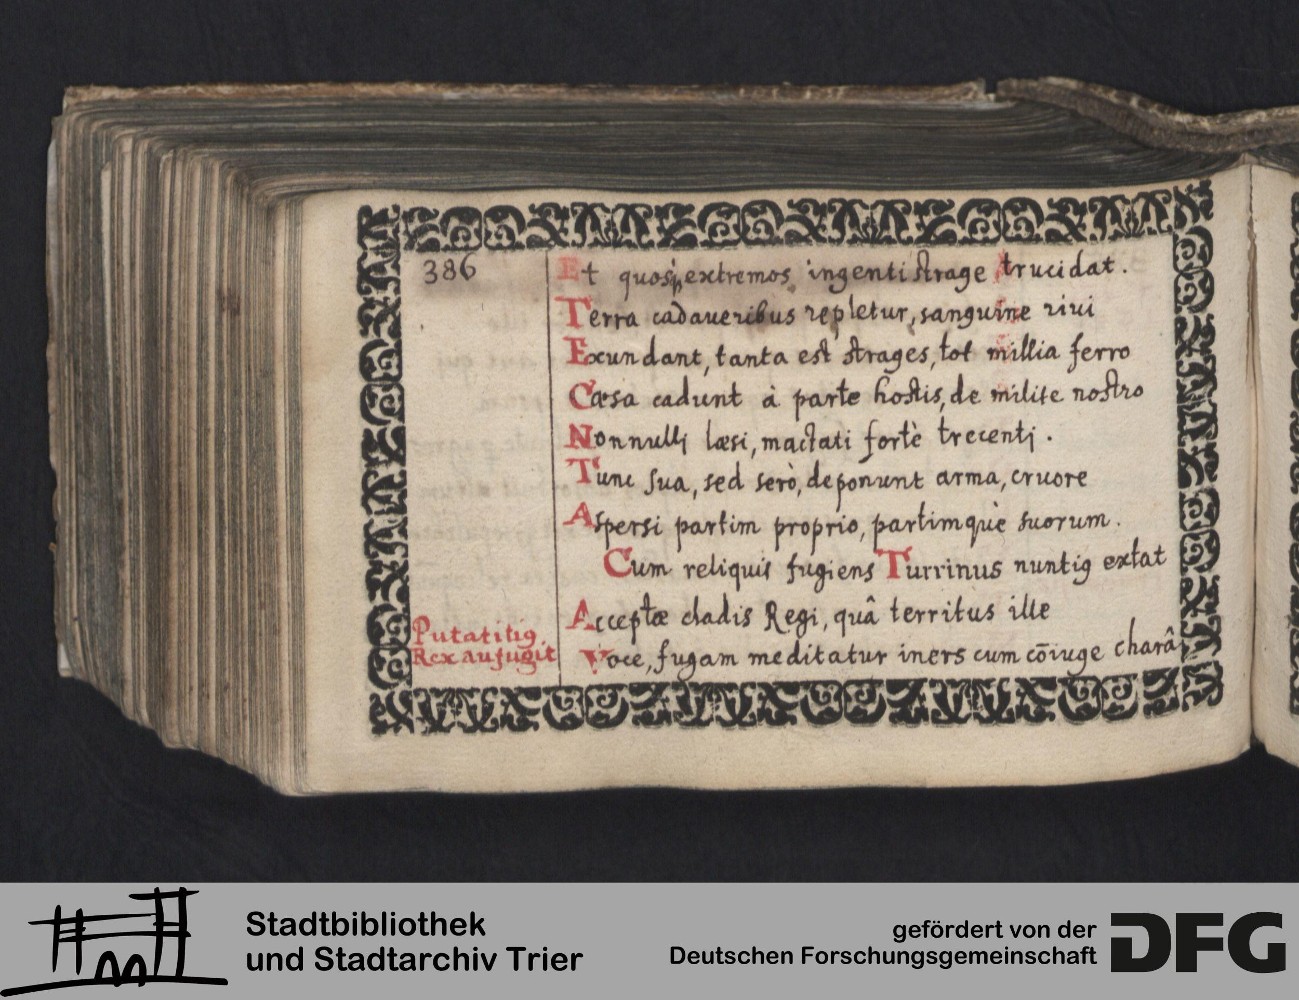 386
Et quosq; extremos ingenti strage trucidat.
Terra cadaueribus repletur, sanguine riui
Exundant, tanta est strages, tot millia ferro
Cæsa cadunt à parte hostis, de milite nostro
Nonnullj læsi, mactati fortè trecentj.
Tunc sua, sed serò, deponunt arma, cruore
Aspersi partim proprio, partimquè suorum.
Cum reliquis fugiens Turrinus nuntig extat
Acceptæ cladis Regi, quâ territus ille
Voce, fugam meditatur iners cum cõiuge charâ,
Putatitig
Rex aufugit
Stadtbibliothek
und Stadtarchiv Trier
gefördert von der
Deutschen Forschungsgemeinschaft
DFG